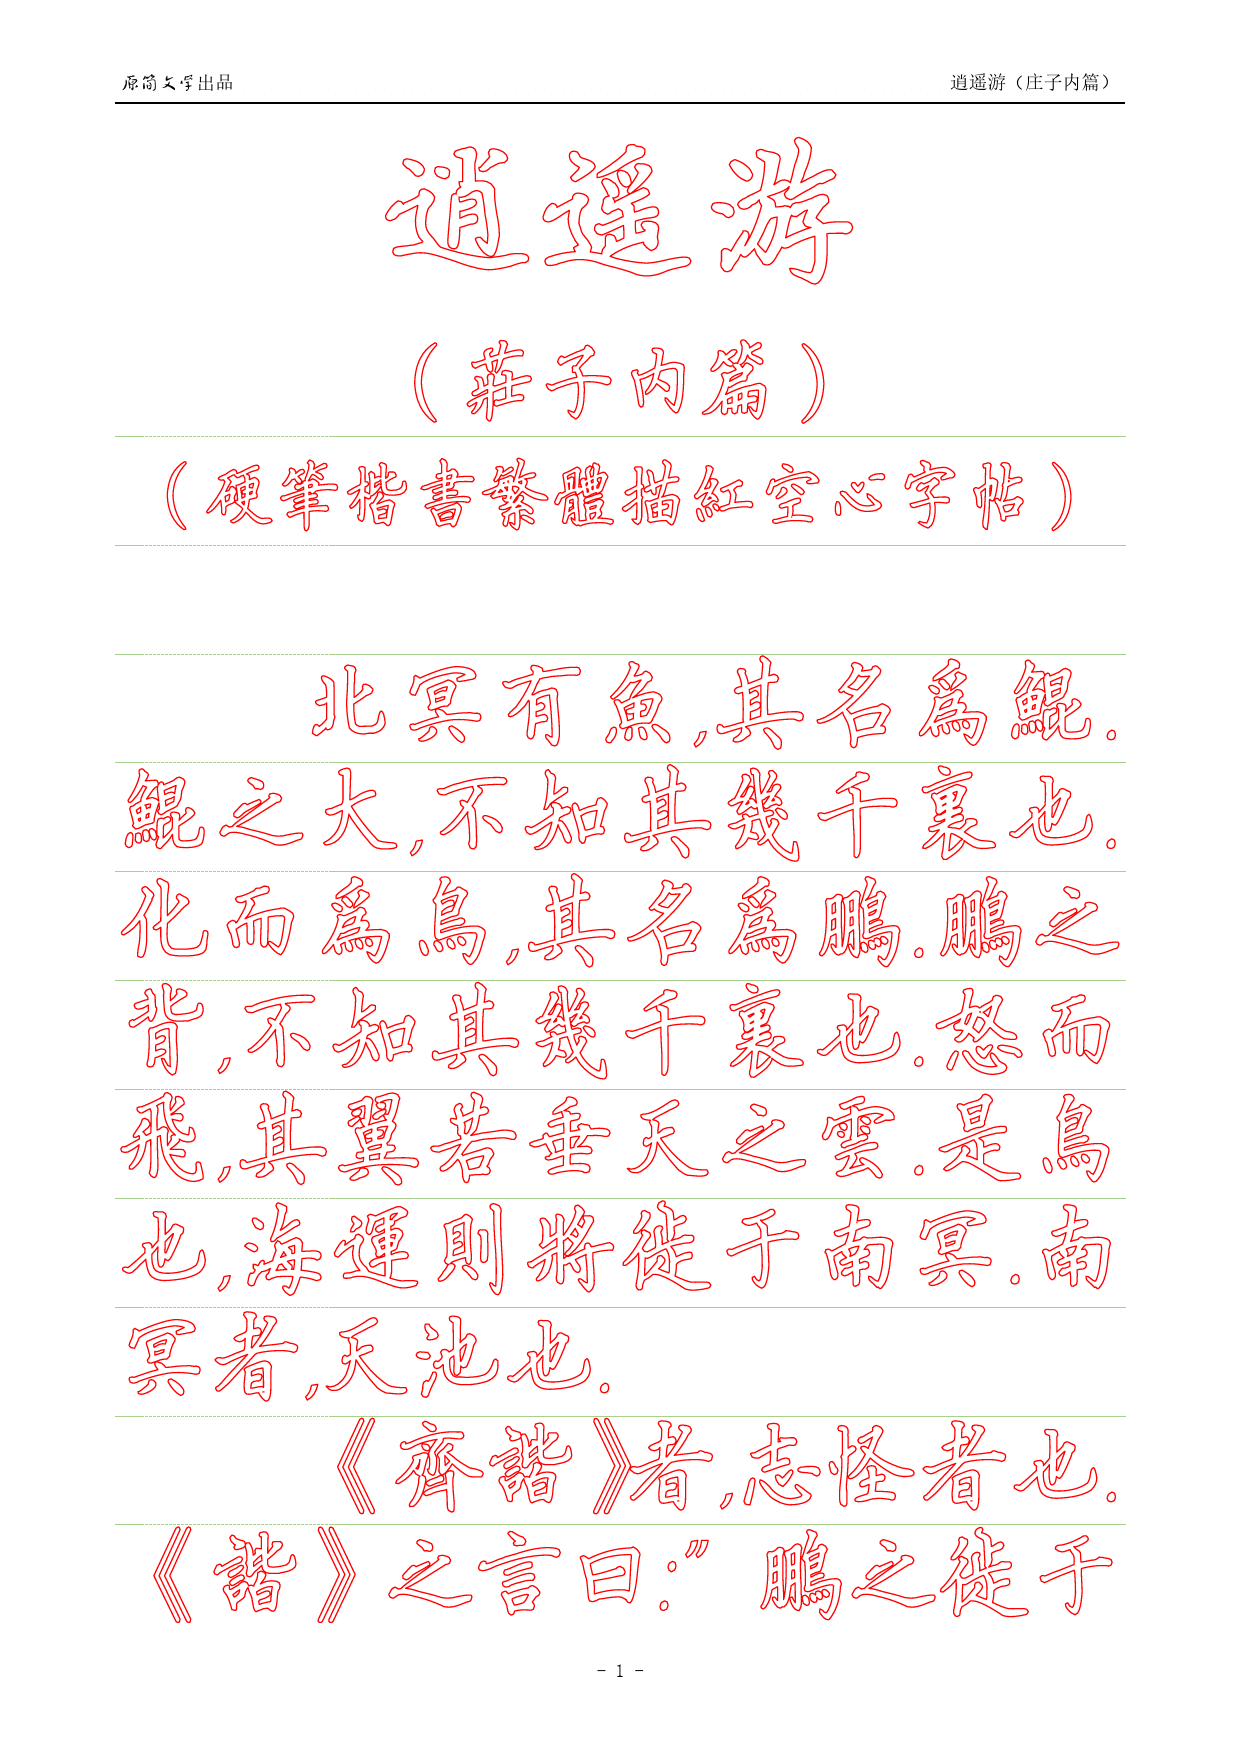 原简文学出品 逍遥游（庄子内篇）
逍遥游
（莊子内篇）
（硬筆楷書繁體描紅空心字帖）
北冥有魚,其名爲鯤.
鯤之大,不知其幾千裏也.
化而爲鳥,其名爲鵬.鵬之
背,不知其幾千裏也.怒而
飛,其翼若垂天之雲.是鳥
也,海運則將徙于南冥.南
冥者,天池也.
《齊諧》者,志怪者也.
《諧》之言曰:”鵬之徙于
- 1 -